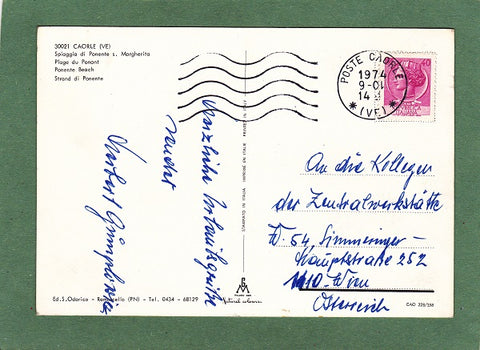 30021 CAORLE (VE)
Spiaggia di Ponente s. Margherita
Plage du Ponant
Ponente Beach
Strand di Ponente
POSTE CAORLE
1974
9-
14
(VE)
40
Herzliche Urlaubsgrüße
sendet
Norbert
STAMPATO IN ITALIA - IMPRIMÉ EN ITALIE - PRINTED IN ITALY
An die Kollegen
der Zentralwerkstätte
54 Simmeringer-
Hauptstraße 252
1110 Wien
Österreich
Ed. S. Odorico - (PN) - Tel. 0434 - 68129
Natural colours
CAO 228/258